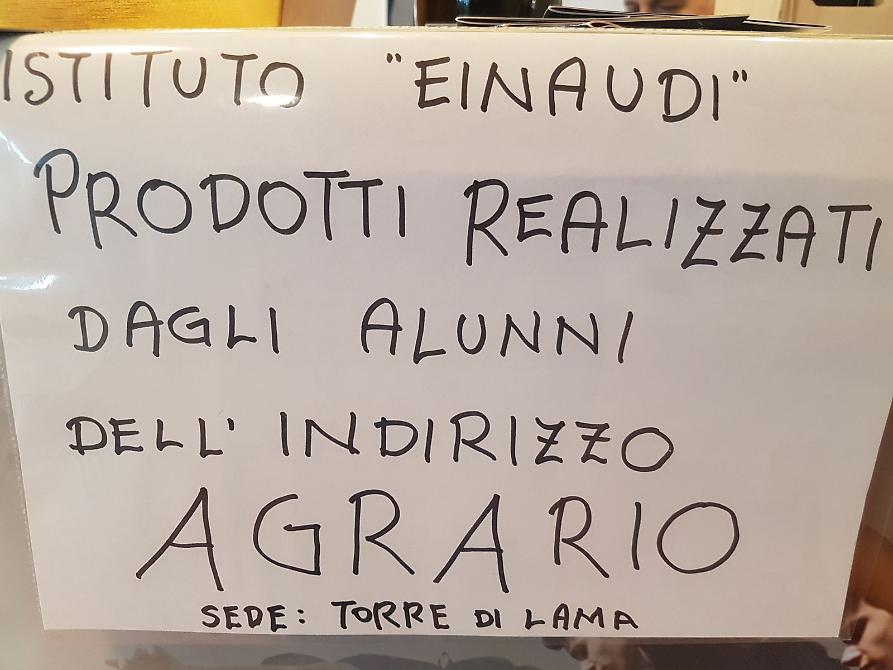 ISTITUTO "EINAUDI"
PRODOTTI REALIZZATI
DAGLI ALUNNI
DELL' INDIRIZZO
AGRARIO
SEDE: TORRE DI LAMA